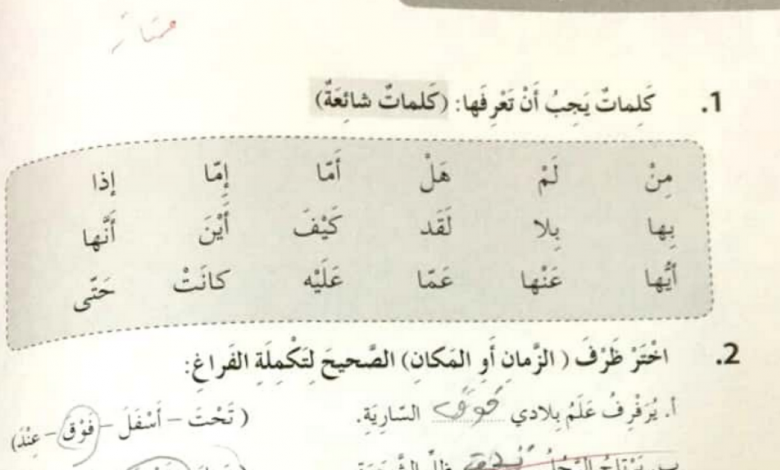 ممتاز
1. كَلِماتٌ يَجِبُ أَنْ تَعْرِفَها: (كَلِماتٌ شائِعَةٌ)
مِنْ لَمْ هَلْ أَمّا إِمّا إذا
بِها بِلا لَقَد كَيْفَ أَيْنَ أَنَّها
أَيُّها عَنْها عَمّا عَلَيْه كانَتْ حَتّى
2. اخْتَرْ ظَرْفَ (الزَّمانِ أَو المَكانِ) الصَّحيحَ لِتَكْمِلَةِ الفَراغِ:
أ. يُرَفْرِفُ عَلَمُ بِلادي فوق السّارِيَةِ. (تَحْتَ – أَسْفَلَ – فَوْقَ – عِنْدَ)
ب. يَرْتاحُ الرَّجُلُ ظِلِّ الشَّجَرَةِ